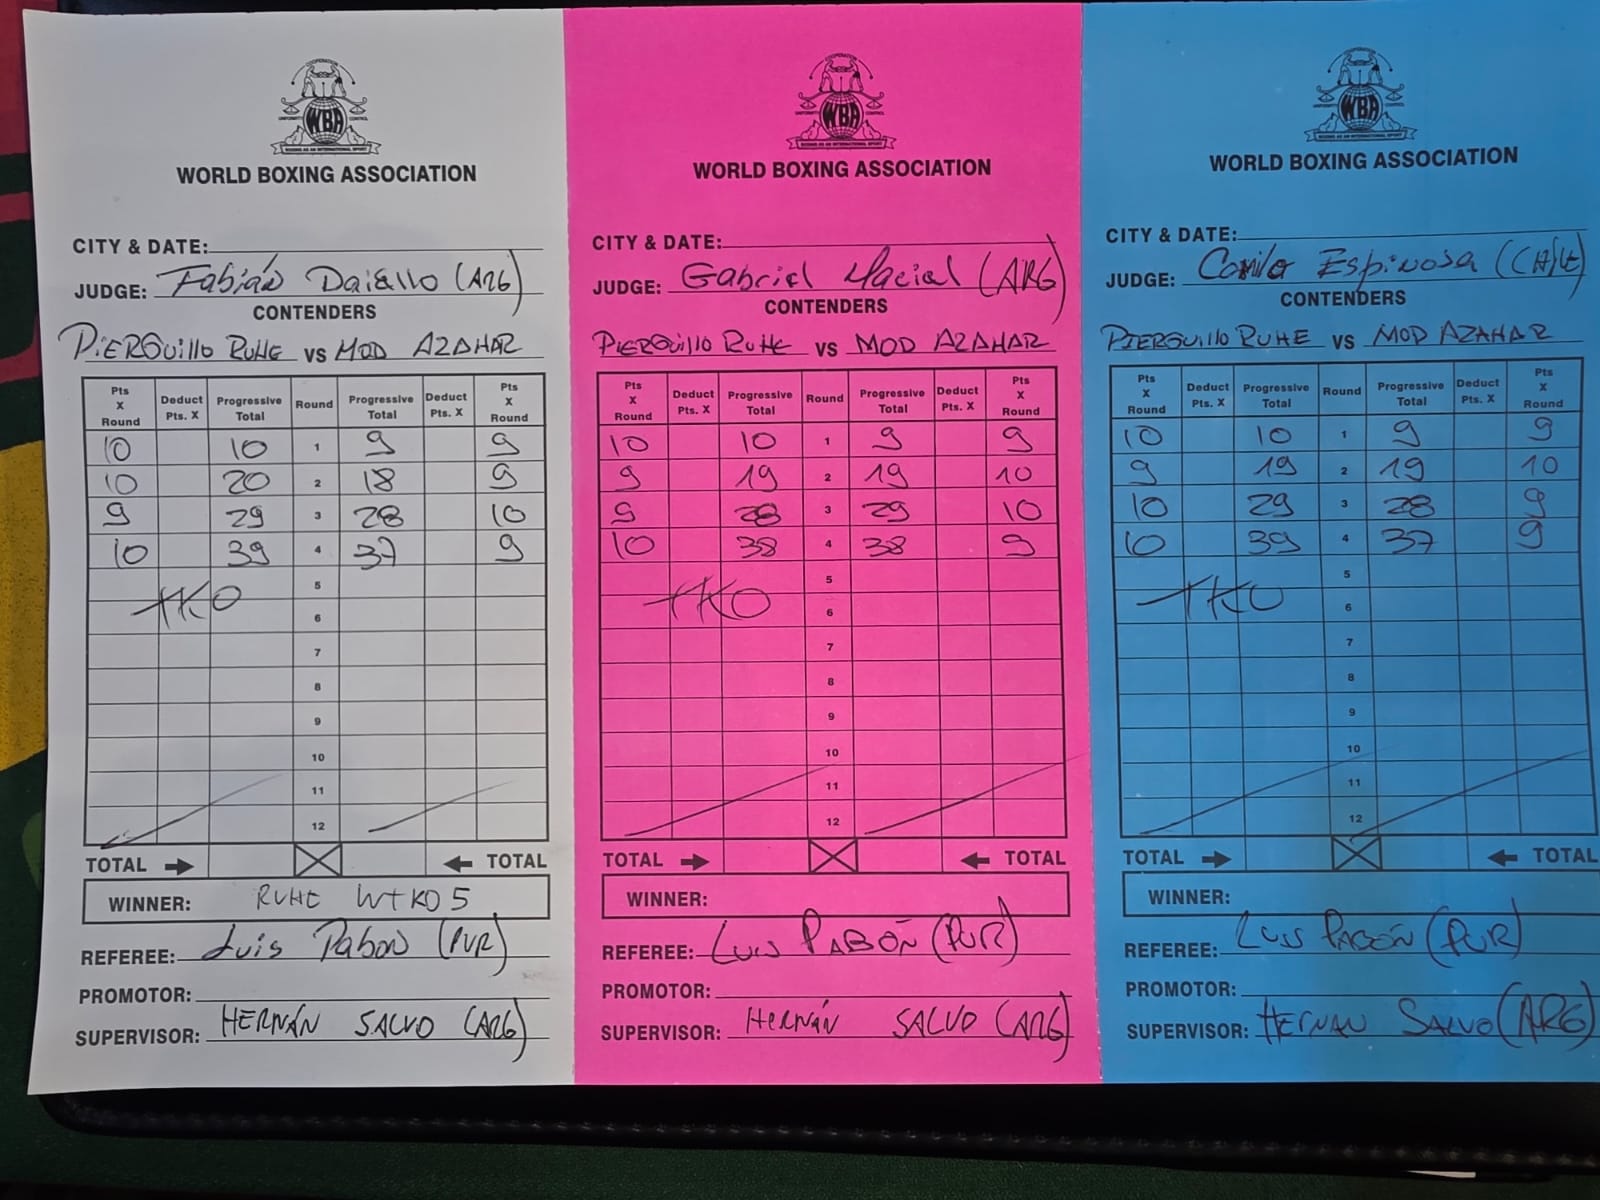 COOPERATION
UNIFORMITY WBA CONTROL
BOXING AS AN INTERNATIONAL SPORT
WORLD BOXING ASSOCIATION
CITY & DATE:
JUDGE: Fabián Daiello (ARG)
CONTENDERS
PIERGUILLO RUHE VS MOD AZAHAR
Pts X Round Deduct Pts. X Progressive Total Round Progressive Total Deduct Pts. X Pts X Round
10 10 1 9 9
10 20 2 18 9
9 29 3 28 10
10 39 4 37 9
5
TKO
6
7
8
9
10
11
12
TOTAL TOTAL
WINNER: RUHE WTKO 5
REFEREE: Luis Pabon (PUR)
PROMOTOR:
SUPERVISOR: HERNÁN SALVO (ARG)
COOPERATION
UNIFORMITY WBA CONTROL
BOXING AS AN INTERNATIONAL SPORT
WORLD BOXING ASSOCIATION
CITY & DATE:
JUDGE: Gabriel Macial (ARG)
CONTENDERS
PIERGUILLO RUHE VS MOD AZAHAR
Pts X Round Deduct Pts. X Progressive Total Round Progressive Total Deduct Pts. X Pts X Round
10 10 1 9 9
9 19 2 19 10
9 28 3 29 10
10 38 4 38 9
5
TKO
6
7
8
9
10
11
12
TOTAL TOTAL
WINNER:
REFEREE: LUIS PABÓN (PUR)
PROMOTOR:
SUPERVISOR: HERNÁN SALVO (ARG)
COOPERATION
UNIFORMITY WBA CONTROL
BOXING AS AN INTERNATIONAL SPORT
WORLD BOXING ASSOCIATION
CITY & DATE:
JUDGE: Camilo Espinosa (CHILE)
CONTENDERS
PIERGUILLO RUHE VS MOD AZAHAR
Pts X Round Deduct Pts. X Progressive Total Round Progressive Total Deduct Pts. X Pts X Round
10 10 1 9 9
9 19 2 19 10
10 29 3 28 9
10 39 4 37 9
5
TKO
6
7
8
9
10
11
12
TOTAL TOTAL
WINNER:
REFEREE: LUIS PABÓN (PUR)
PROMOTOR:
SUPERVISOR: HERNAN SALVO (ARG)